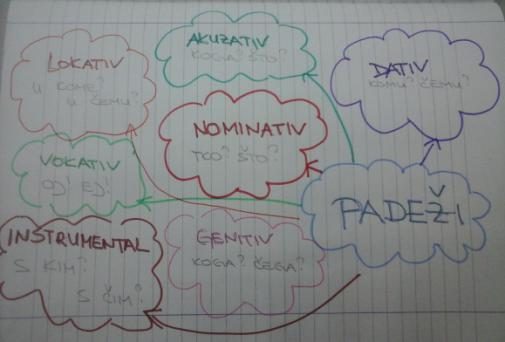 LOKATIV
U KOME?
U ČEMU?
AKUZATIV
KOGA? ŠTO?
DATIV
KOMU? ČEMU?
NOMINATIV
TKO? ŠTO?
VOKATIV
OJ! EJ!
PADEŽI
INSTRUMENTAL
S KIM?
S ČIM?
GENITIV
KOGA? ČEGA?